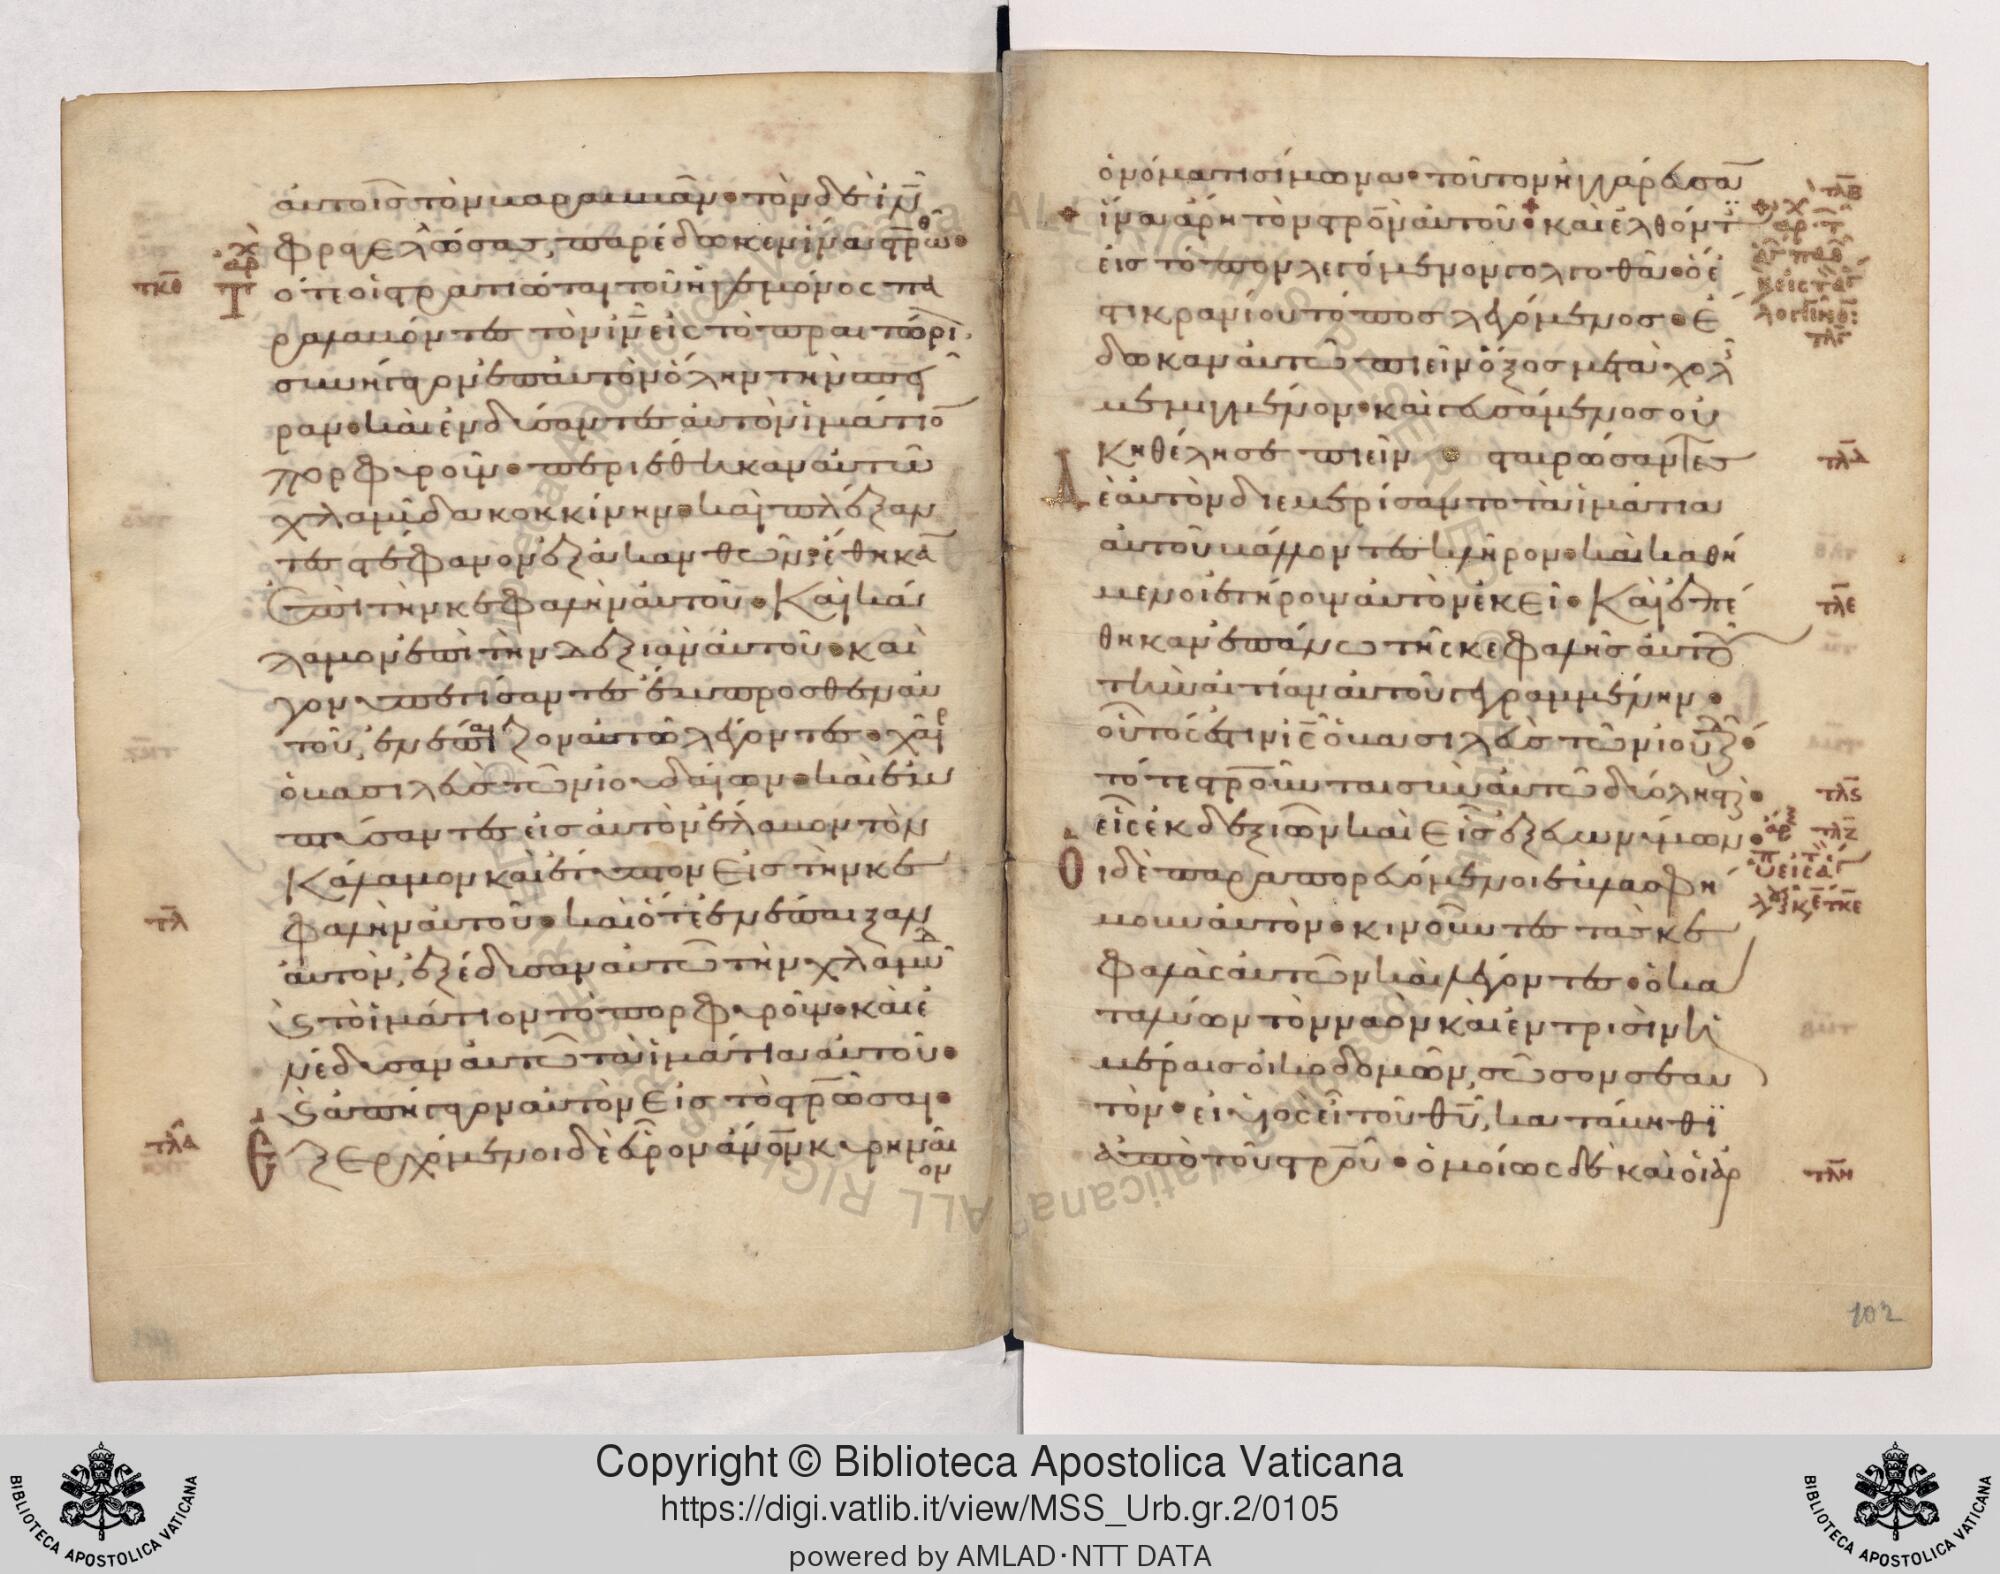 αὐτοῖς τὸν βαραββᾶν· τὸν δὲ ἰν̅
φραγελλώσας, παρέδωκεν ἵνα στρ̅ωθῆ·
Τότε οἱ στρατιῶται τοῦ ἡγεμόνος πα
ραλαβόντες τὸν ιν̅ εἰς τὸ πραιτώρι
συνήγαγον ἐπ αὐτὸν ὅλην τὴν σπεῖ
ραν· καὶ ἐνδύσαντες αὐτὸν ἱμάτιο̅
πορφυροῦν· περιέθηκαν αὐτῶ
χλαμύδα κοκκίνην· καὶ πλέξαν
τες στέφανον ἐξ ἀκανθῶν· ἔθηκα̅
ἐπὶ τὴν κεφαλὴν αὐτοῦ· Καὶ κά
λαμον ἐπὶ τὴν δεξιὰν αὐτοῦ· καὶ
γονυπετήσαντες ἔμπροσθεν αὐ
τοῦ, ἐνέπαιζον αὐτῶ λέγοντες· χαῖρε
ὁ βασιλεὺς τῶν ἰουδαίων· καὶ ἐμ
πτύσαντες εἰς αὐτὸν ἔλαβον τὸν
Κάλαμον καὶ ἔτυπτον εἰς τὴν κε
φαλὴν αὐτοῦ· καὶ ὅτε ἐνέπαιξαν
αὐτὸν, ἐξέδυσαν αὐτῶ τὴν χλαμύδ
ϛ τὸ ἱμάτιον τὸ πορφυροῦν· καὶ ἐ
νέδυσαν αὐτῶ τὰ ἱμάτια αὐτοῦ·
ϛ ἀπήγαγον αὐτὸν εἰς τὸ στρ̅ῶσαι·
Ἐξερχόμενοι δὲ εὗρον ἄνο̅ν κυρηναῖ
ον
τκθ
τλ
τλα
ὀνόματι σίμωνα· τοῦτον ἠγγάρευσα̅
ἵνα ἄρη τὸν στρο̅ν αὐτοῦ· καὶ ἐλθόντ
εἰς τόπον λεγόμενον γολγοθᾶ· ὅ ἐ
στι κρανίου τόπος λεγόμενος· ἔ
δωκαν αὐτῶ πιεῖν ὄξος μετὰ χολῆ
μεμιγμένον· καὶ γευσάμενος οὐ
κ ἠθέλησε πιεῖν· σταυρώσαντες
Δὲ αὐτὸν διεμερίσαντο τὰ ἱμάτια
αὐτοῦ βάλλοντες κλῆρον· καὶ καθή
μενοι ἐτήρουν αὐτὸν ἐκεῖ· Καὶ ἐπέ
θηκαν ἐπάνω τῆς κεφαλῆς αὐτοῦ
τὴν αἰτίαν αὐτοῦ γεγραμμένην·
οὗτός ἐστιν ις̅ ὁ βασιλεὺς τῶν ἰουδ·
τότε στρο̅ῦνται σὺν αὐτῶ δύο λησταὶ·
εἷς ἐκ δεξιῶν καὶ εἷς ἐξ εὐωνύμων·
Οἱ δὲ παραπορευόμενοι ἐβλασφή
μουν αὐτὸν· κινοῦντες τὰς κε
φαλὰς αὐτῶν καὶ λέγοντες· ὁ κα
ταλύων τὸν ναὸν καὶ ἐν τρισὶν ἡ
μέραις οἰκοδομῶν, σῶσον σεαυ
τόν· εἰ υἱὸς εἶ τοῦ θυ̅, κατάβηθι
ἀπὸ τοῦ στρο̅ῦ· ὁμοίως δὲ καὶ οἱ ἀρ
τλβ
τλγ
τλδ
τλε
τλϛ
τλζ
τλη
102
Copyright © Biblioteca Apostolica Vaticana
https://digi.vatlib.it/view/MSS_Urb.gr.2/0105
powered by AMLAD·NTT DATA
BIBLIOTECA APOSTOLICA VATICANA
BIBLIOTECA APOSTOLICA VATICANA